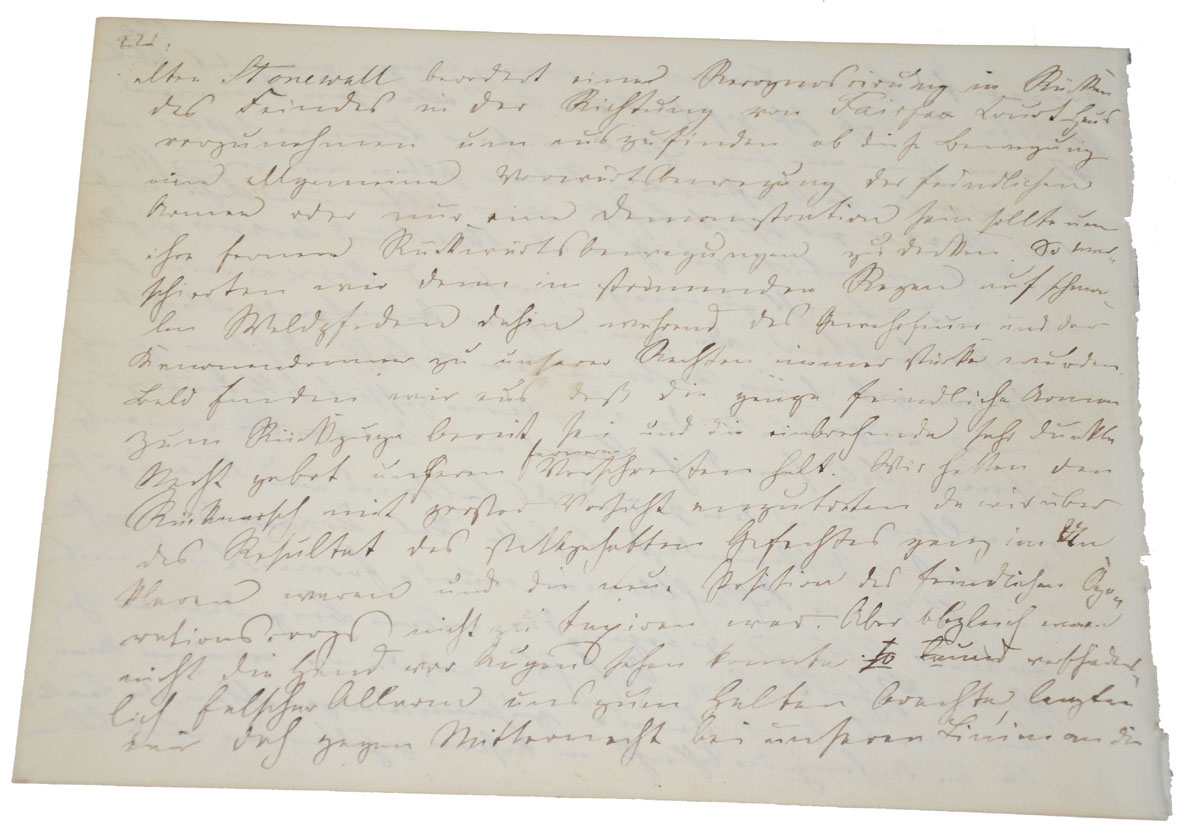 221.
alten Stonewall beordert eine Recognoscirung im Rücken
des Feindes in der Richtung von Fairfax Court-Haus
vorzunehmen um auszufinden ob diese Bewegung
eine allgemeine Vorwärtsbewegung der feindlichen
Armee oder nur eine Demonstration sein sollte um
ihre fernere Rückwärtsbewegungen zu decken. So mar-
schierten wir denn im strömenden Regen auf schma-
len Waldpfaden dahin während das Gewehrfeuer und der
Kanonendonner zu unserer Rechten immer stärker wurden.
Bald fanden wir aus daß die ganze feindliche Armee
zum Rückzuge bereit sei und die einbrechende sehr dunkle
Nacht gebot unserem fernern Vorschreiten halt. Wir hatten den
Rückmarsch mit großer Vorsicht anzutreten da wir über
das Resultat des stattgehabten Gefechtes ganz im Un
klaren waren und die neue Position des feindlichen Ope-
rationscorps nicht zu taxiren war. Aber obgleich man
nicht die Hand vor Augen sehen konnte und verschiedent-
lich falscher Allarm uns zum Halten brachte, langten
wir doch gegen Mitternacht bei unseren Linien an die